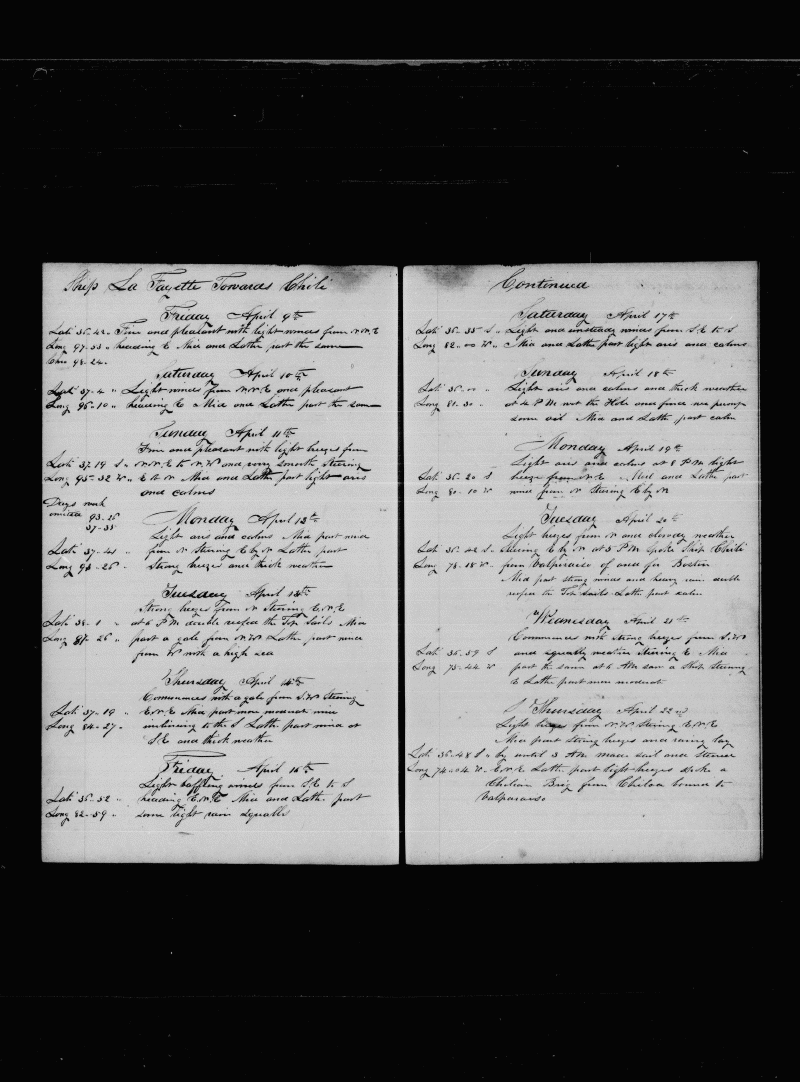 Ship La Fayette Towards Chili
Friday April 9th
Lati 36-42 " Fine and pleasant with light winds from N.N.E
Long 97-33 " heading E Mid and Latter part the same
Chro 98-24
Saturday April 10th
Lati 37-4 " Light winds from N.N.E and pleasant
Long 96-10 " heading E Mid and Latter part the same
Sunday April 11th
Fine and pleasant with light breezes from
Lati 37-19 S " N.N.E to N.W and very smooth Steering
Long 95-32 W " E Mid and Latter part light airs
and calms
Days work
omitted 93-26
37-38
Monday April 13th
Light airs and calms Mid part wind
Lati 37-41 " from N Steering E by N Latter part
Long 93-26 " Strong breezes and thick weather
Tuesday April 13th
Strong breezes from N Steering E.N.E
Lati 38-1 " at 6 P M double reefed the Top Sails Mid
Long 87-26 " part a gale from N.W Latter part wind
from W with a high sea
Thursday April 15th
Commences with a gale from S.W Steering
Lati 37-19 " E.N.E Mid part more moderate wind
Long 84-27 " inclining to the S Latter part wind at
S.E and thick weather
Friday April 16th
Light baffling winds from S.E to S
Lati 36-52 " heading E.N.E Mid and Latter part
Long 82-59 " some light rain squalls
Continued
Saturday April 17th
Lati 36-35 S " Light and unsteady winds from S.E to S
Long 82-00 W " Mid and Latter part light airs and calms
Sunday April 18th
Lati 36-00 " Light airs and calms and thick weather
Long 81-30 " at 4 P M wet the Hold and found we pump
some oil Mid and Latter part calm
Monday April 19th
Light airs and calms at 8 P M light
Lati 36-20 S breeze from N.E Mid and Latter part
Long 80-10 W wind from N Steering E by N
Tuesday April 20th
Light breezes from N and cloudy weather
Lati 36-42 S " Steering E by N at 5 P M Spoke Ship Chili
Long 78-18 W " from Valparaiso of and for Boston
Mid part strong winds and heavy rain double
reefed the Top Sails Latter part calm
Wednesday April 21st
Commences with strong breezes from S.W
Lati 36-59 S and squally weather Steering E Mid
Long 75-44 W part the same at 6 AM saw a Ship Steering
E Latter part more moderate
Thursday April 22nd
Light breeze from N.W Steering E.N.E
Mid part Strong breezes and rainy lay
Lati 36-48 S " by until 3 AM made sail and Steered
Long 74-04 W " E.N.E Latter part light breezes spoke a
Chilian Brig from Chiloe bound to
Valparaiso